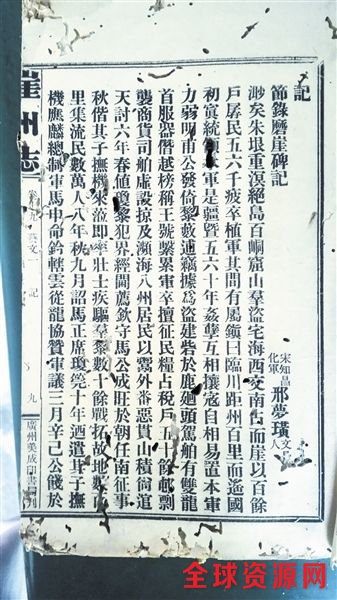 記
節錄磨崖碑記
宋知昌化軍 邢夢璜 文昌人
渺矣朱垠重溟絕島百峒窟山羣盜宅海西交南占而崖以百餘
戶孱民五六千疲卒植軍其間有屬鎭曰臨川距州百里而遙國
初寘統領軍是疆暨五六十年姦孽互相攘竊自相易置本軍
力弱甫公發倚黎數逋竊據爲盜建砦於鹿廻頭駕舶有雙龍
首服器僭越榜稱王號軍卒擅征民糧占稅戶五十餘剽
襲商貨司舶虛設掠及瀕海八州居民以鬻外番惡貫山積尙逭
天討六年春値瓊黎犯界經閫薦欽守馬公成旺於朝任南征事
秋偕其子撫機來涖卽率壯士疾驅羣黎數十餘戰拓故地數百
里集流民數萬人八年秋九月詔馬正席瓊筦十年迺遣其子撫
機應麟總制軍馬申命鈐轄雲從龍協贊軍議三月辛巳公餞於
崖州志
藝文
記
九
廣州美成印書局刊
全球资源网